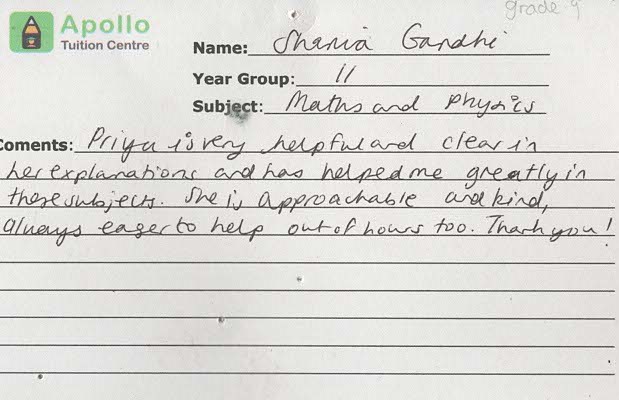 grade 9
Apollo
Tuition Centre
Name: Shania Gandhi
Year Group: 11
Subject: Maths and Physics
Coments: Priya is very helpful and clear in
her explanations and has helped me greatly in
these subjects. She is approachable and kind,
always eager to help out of hours too. Thank you!